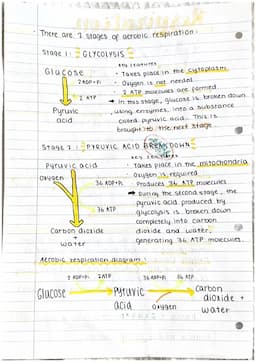 Respiration
• There are 2 stages of aerobic respiration:
Stage 1: GLYCOLYSIS
KEY FEATURES
Glucose
• Takes place in the cytoplasm
2 ADP+Pi
• Oxygen is not needed
• 2 ATP molecules are formed
2 ATP
→ In this stage, glucose is broken down
Pyruvic
using enzymes, into a substance
acid
called pyruvic acid. This is
brought to the next stage
Stage 2: PYRUVIC ACID BREAKDOWN
KEY FEATURES
Pyruvic acid
• Takes place in the mitochondria
Oxygen
• Oxygen is required
36 ADP+Pi
• Produces 36 ATP molecules
→ During the second stage, the
pyruvic acid produced by
36 ATP
glycolysis is broken down
completely into carbon
Carbon dioxide
dioxide and water,
+
generating 36 ATP molecules.
water
Aerobic respiration diagram:
2 ADP+Pi 2ATP 36 ADP+Pi 36 ATP
Glucose Pyruvic carbon
acid Oxygen dioxide +
water